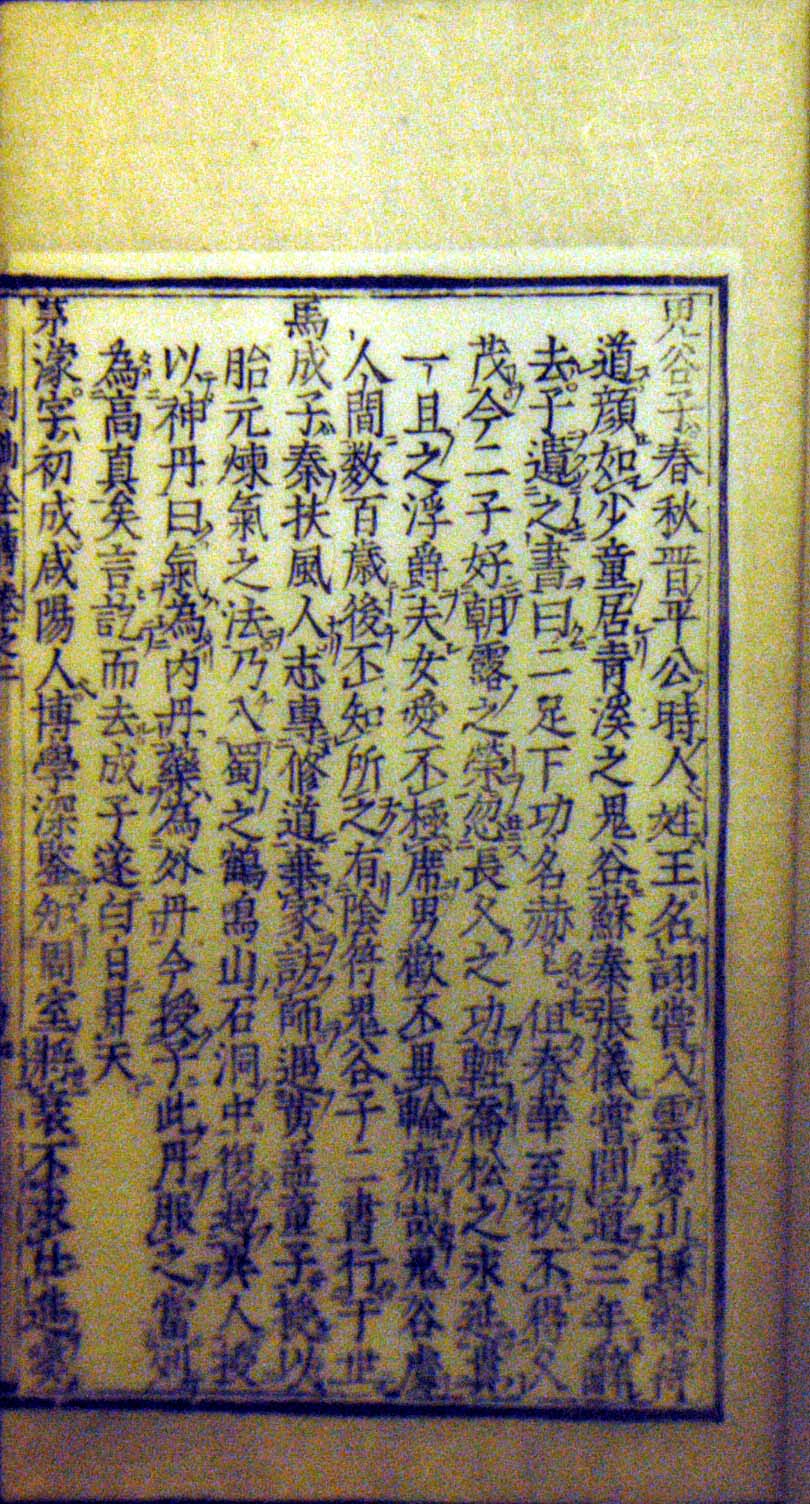 鬼谷子春秋晋平公時人姓王名詡嘗入雲夢山採藥得
道顔如少童居青溪之鬼谷蘇秦張儀嘗問道三年辭
去子遺之書曰二足下功名赫赫但春華至秋不得久
茂今二子好朝露之榮忽長久之功輕喬松之永延貴
一旦之浮爵夫女愛不極席男歡不畢輪痛哉鬼谷處
人間数百歳後不知所之有陰符鬼谷子二書行于世
馬成子秦扶風人志專修道棄家訪師遇黄盖童子授以
胎元煉氣之法乃入蜀之鶴鳴山石洞中復遇異人授
以神丹曰氣為内丹藥為外丹今授子此丹服之當列
為高真矣言訖而去成子遂白日昇天
茅濛字初成咸陽人博學深鑒 室將衰不求仕進
列仙全傳卷之二